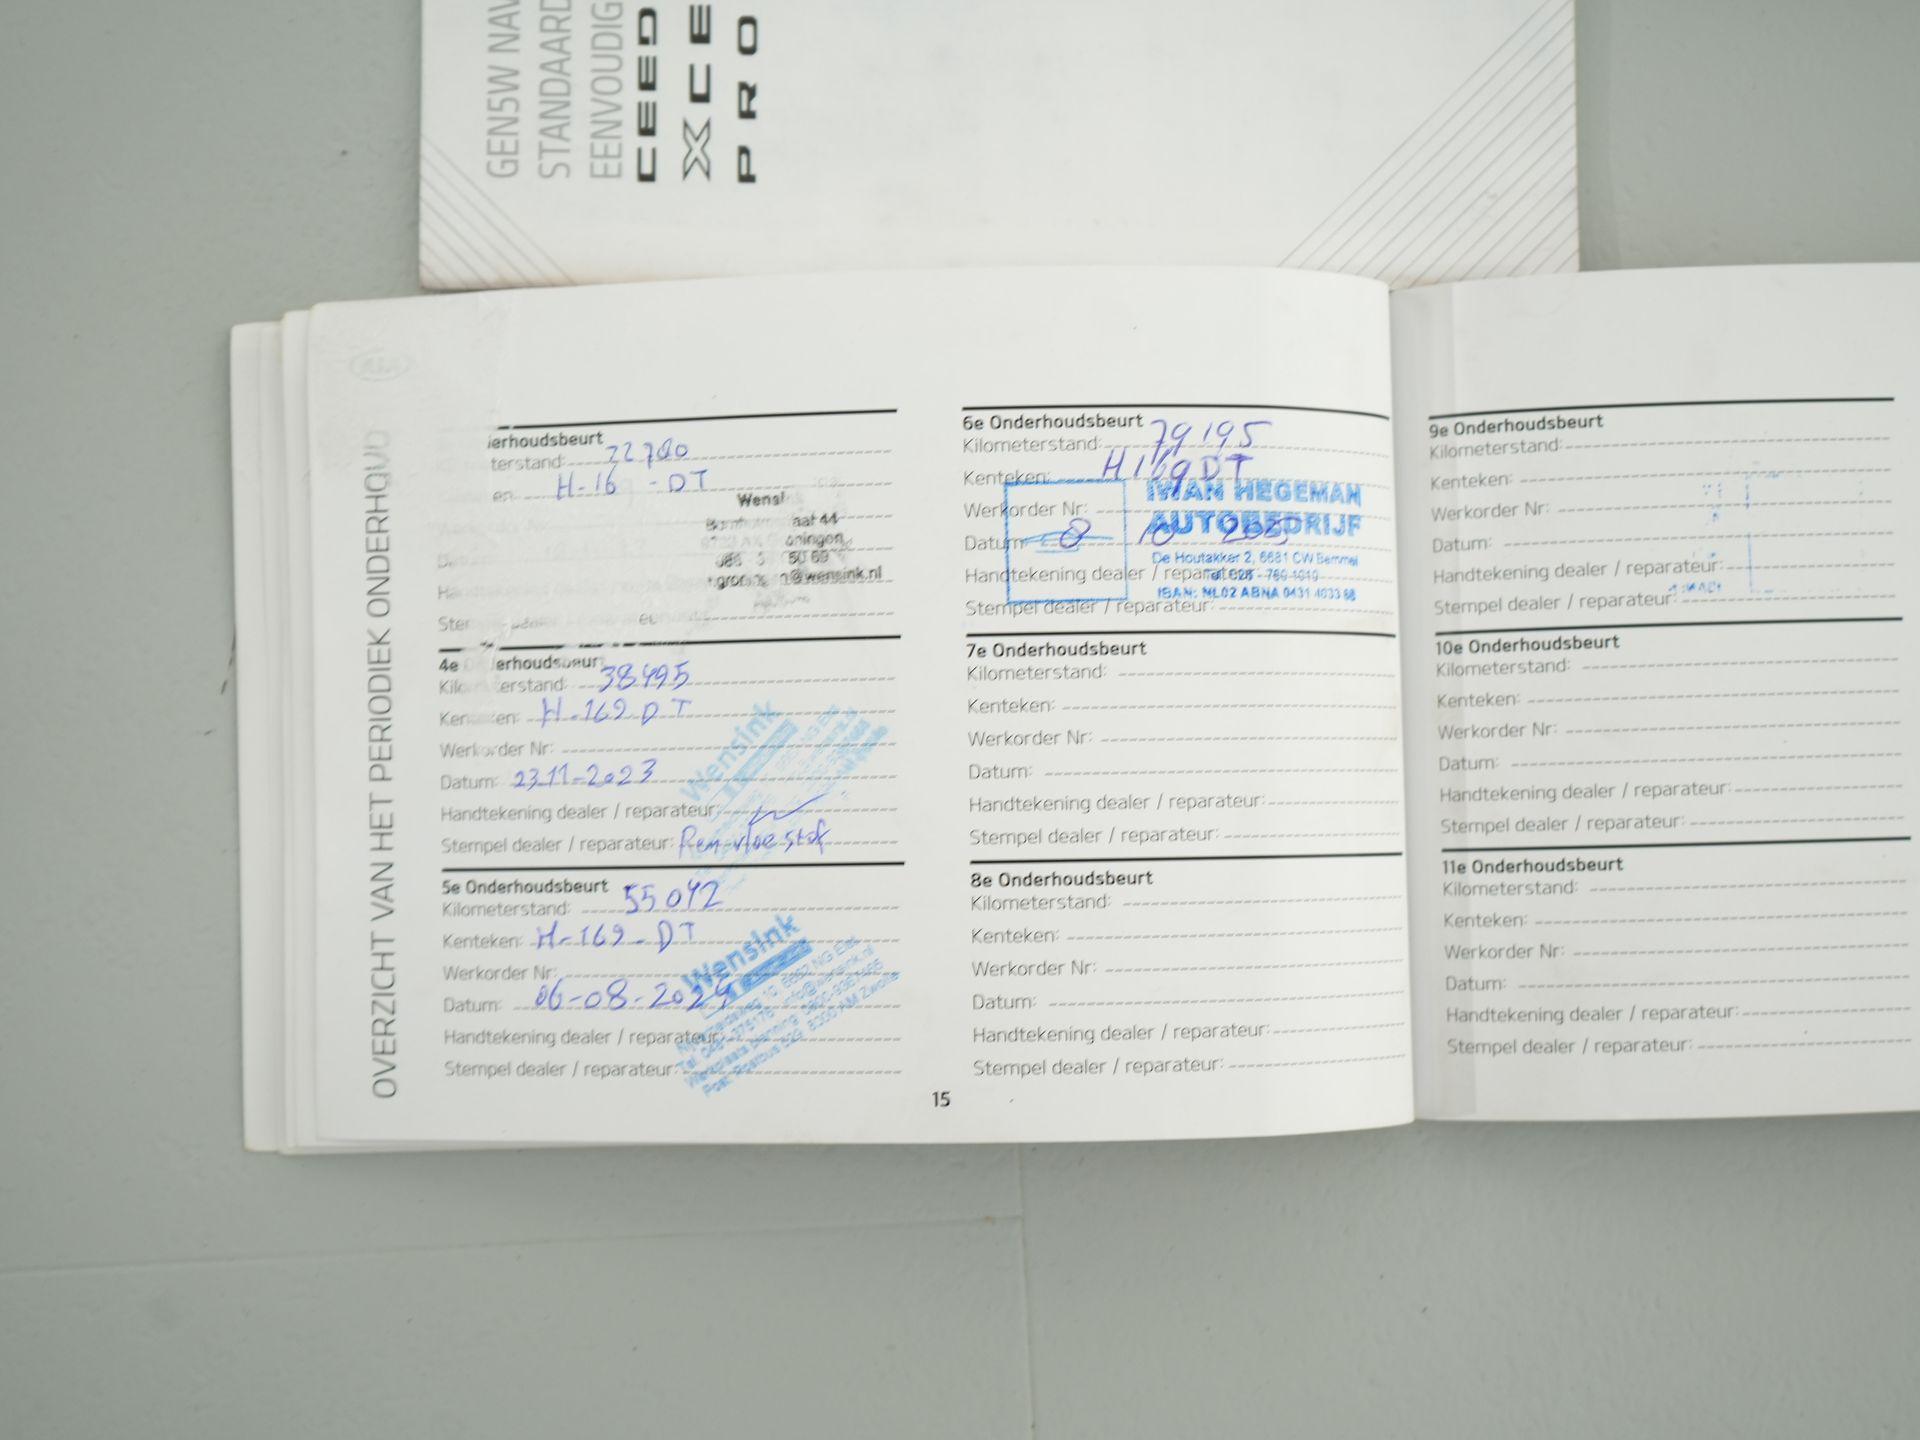 GEN5W NAV
STANDAARD
EENVOUDIG
CEED
XCE
PRO
OVERZICHT VAN HET PERIODIEK ONDERHOUD
erhoudsbeurt
terstand: 22780
en: H-16 -DT
Wensi
aat 44
oningen
50 69
@wensink.nl
4e erhoudsbeur
Kil erstand: 38495
Ken en: H-169-DT
Werkorder Nr:
Datum: 23-11-2023
Handtekening dealer / reparateur:
Stempel dealer / reparateur: Remvloeistof
Wensink
5e Onderhoudsbeurt
Kilometerstand: 55042
Kenteken: H-169-DT
Werkorder Nr:
Datum: 06-08-2024
Handtekening dealer / reparateur:
Stempel dealer / reparateur:
Wensink
6e Onderhoudsbeurt
Kilometerstand: 79195
Kenteken: H169DT
Werkorder Nr:
Datum: 8 10
Handtekening dealer / reparateur:
Stempel dealer / reparateur:
IWAN HEGEMAN
AUTOBEDRIJF
De Houtakker 2, 6681 CW Bemmel
7e Onderhoudsbeurt
Kilometerstand:
Kenteken:
Werkorder Nr:
Datum:
Handtekening dealer / reparateur:
Stempel dealer / reparateur:
8e Onderhoudsbeurt
Kilometerstand:
Kenteken:
Werkorder Nr:
Datum:
Handtekening dealer / reparateur:
Stempel dealer / reparateur:
15
9e Onderhoudsbeurt
Kilometerstand:
Kenteken:
Werkorder Nr:
Datum:
Handtekening dealer / reparateur:
Stempel dealer / reparateur:
10e Onderhoudsbeurt
Kilometerstand:
Kenteken:
Werkorder Nr:
Datum:
Handtekening dealer / reparateur:
Stempel dealer / reparateur:
11e Onderhoudsbeurt
Kilometerstand:
Kenteken:
Werkorder Nr:
Datum:
Handtekening dealer / reparateur:
Stempel dealer / reparateur: